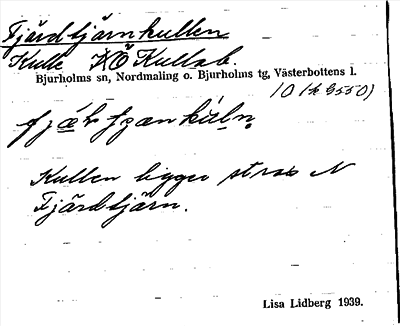 Fjärdtjärnkullen
Kulle NÖ Kullab.
Bjurholms sn, Nordmaling o. Bjurholms tg, Västerbottens l.
Kullen ligger strax N
Fjärdtjärn.
Lisa Lidberg 1939.